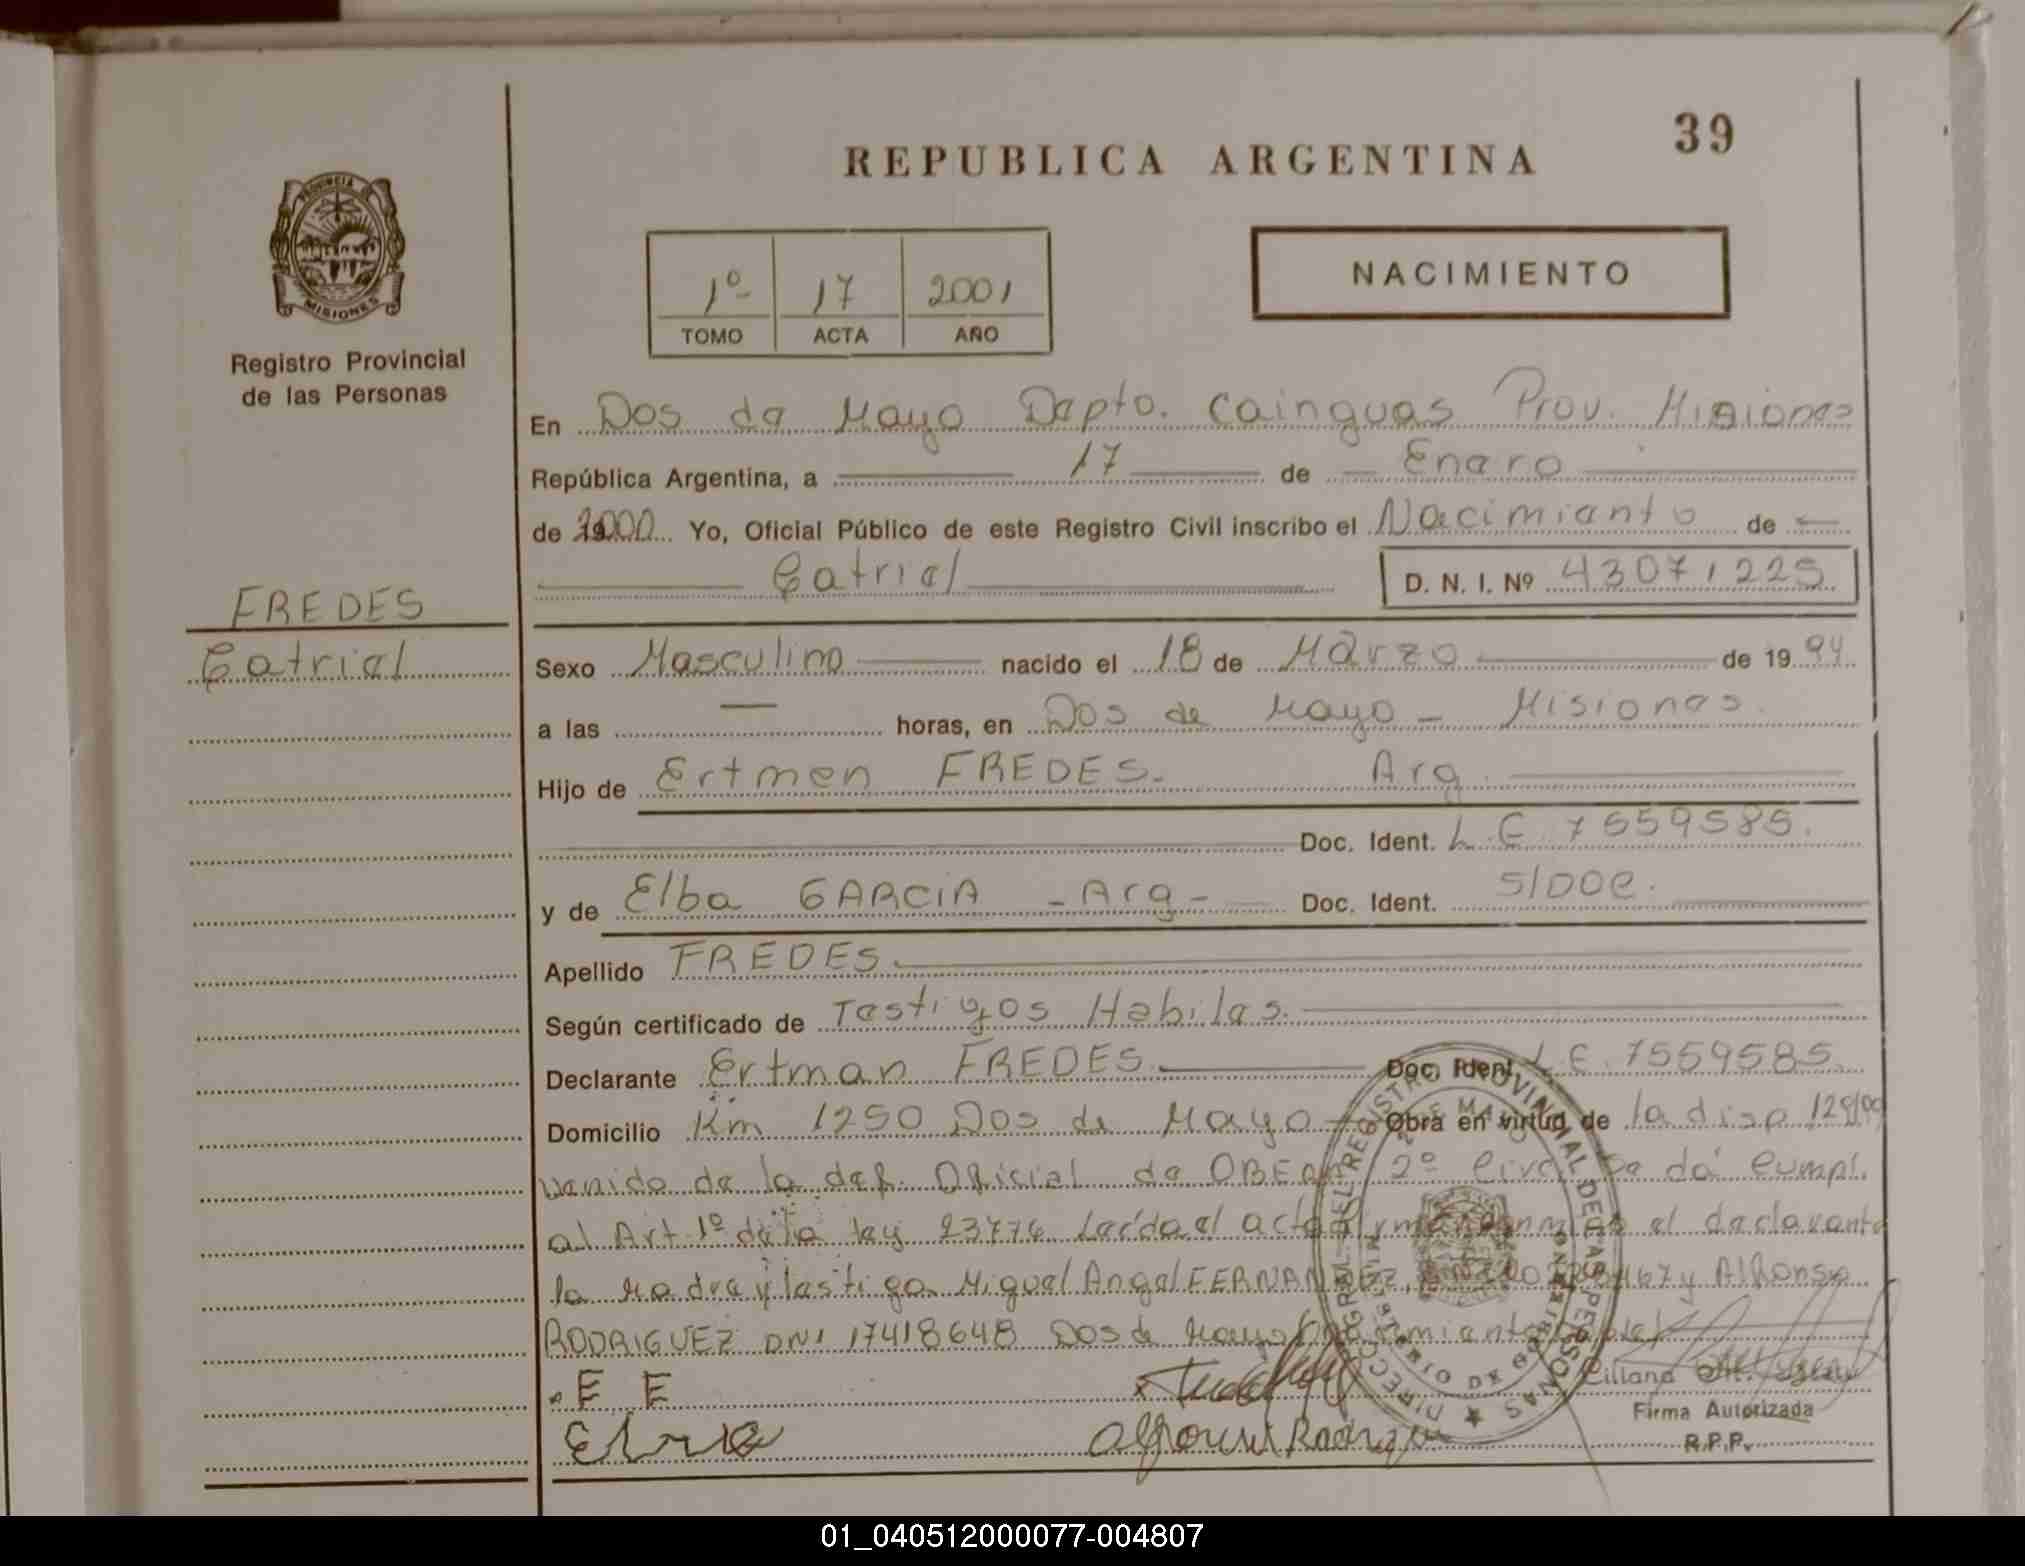 39
REPUBLICA ARGENTINA
PROVINCIA DE
MISIONES
Registro Provincial
de las Personas
1º 17 2001
TOMO ACTA AÑO
NACIMIENTO
En Dos de Mayo Depto. Cainguas Prov. Misiones
República Argentina, a 17 de Enero
de 2000 Yo, Oficial Público de este Registro Civil inscribo el Nacimiento de
Catriel D. N. I. Nº 43071225
FREDES
Catriel
Sexo Masculino nacido el 18 de Marzo de 1994
a las — horas, en Dos de Mayo - Misiones.
Hijo de Ertmen FREDES. Arg.
Doc. Ident. L.E. 7559585.
y de Elba GARCIA - Arg - Doc. Ident. S/DOC.
Apellido FREDES.
Según certificado de Testigos Habiles.
Declarante Ertman FREDES. Doc. Ident. L.E. 7559585
Domicilio Km 1250 Dos de Mayo Obra en virtud de la disp 129/99
venido de la def. Oficial de OBERA 2º Circ. Se dá Cumpl.
al Art. 1º de la ley 23776 Leída el acta firman el declarante
la Madre y testigo Miguel Angel FERNANDEZ, y Alfonso
RODRIGUEZ DNI 17418648 Dos de Mayo
E E
Elva
Alfonso Rodriguez
DIRECC. GRAL. DEL REGISTRO PROVINCIAL DE LAS PERSONAS
Firma Autorizada
R.P.P.
01_040512000077-004807